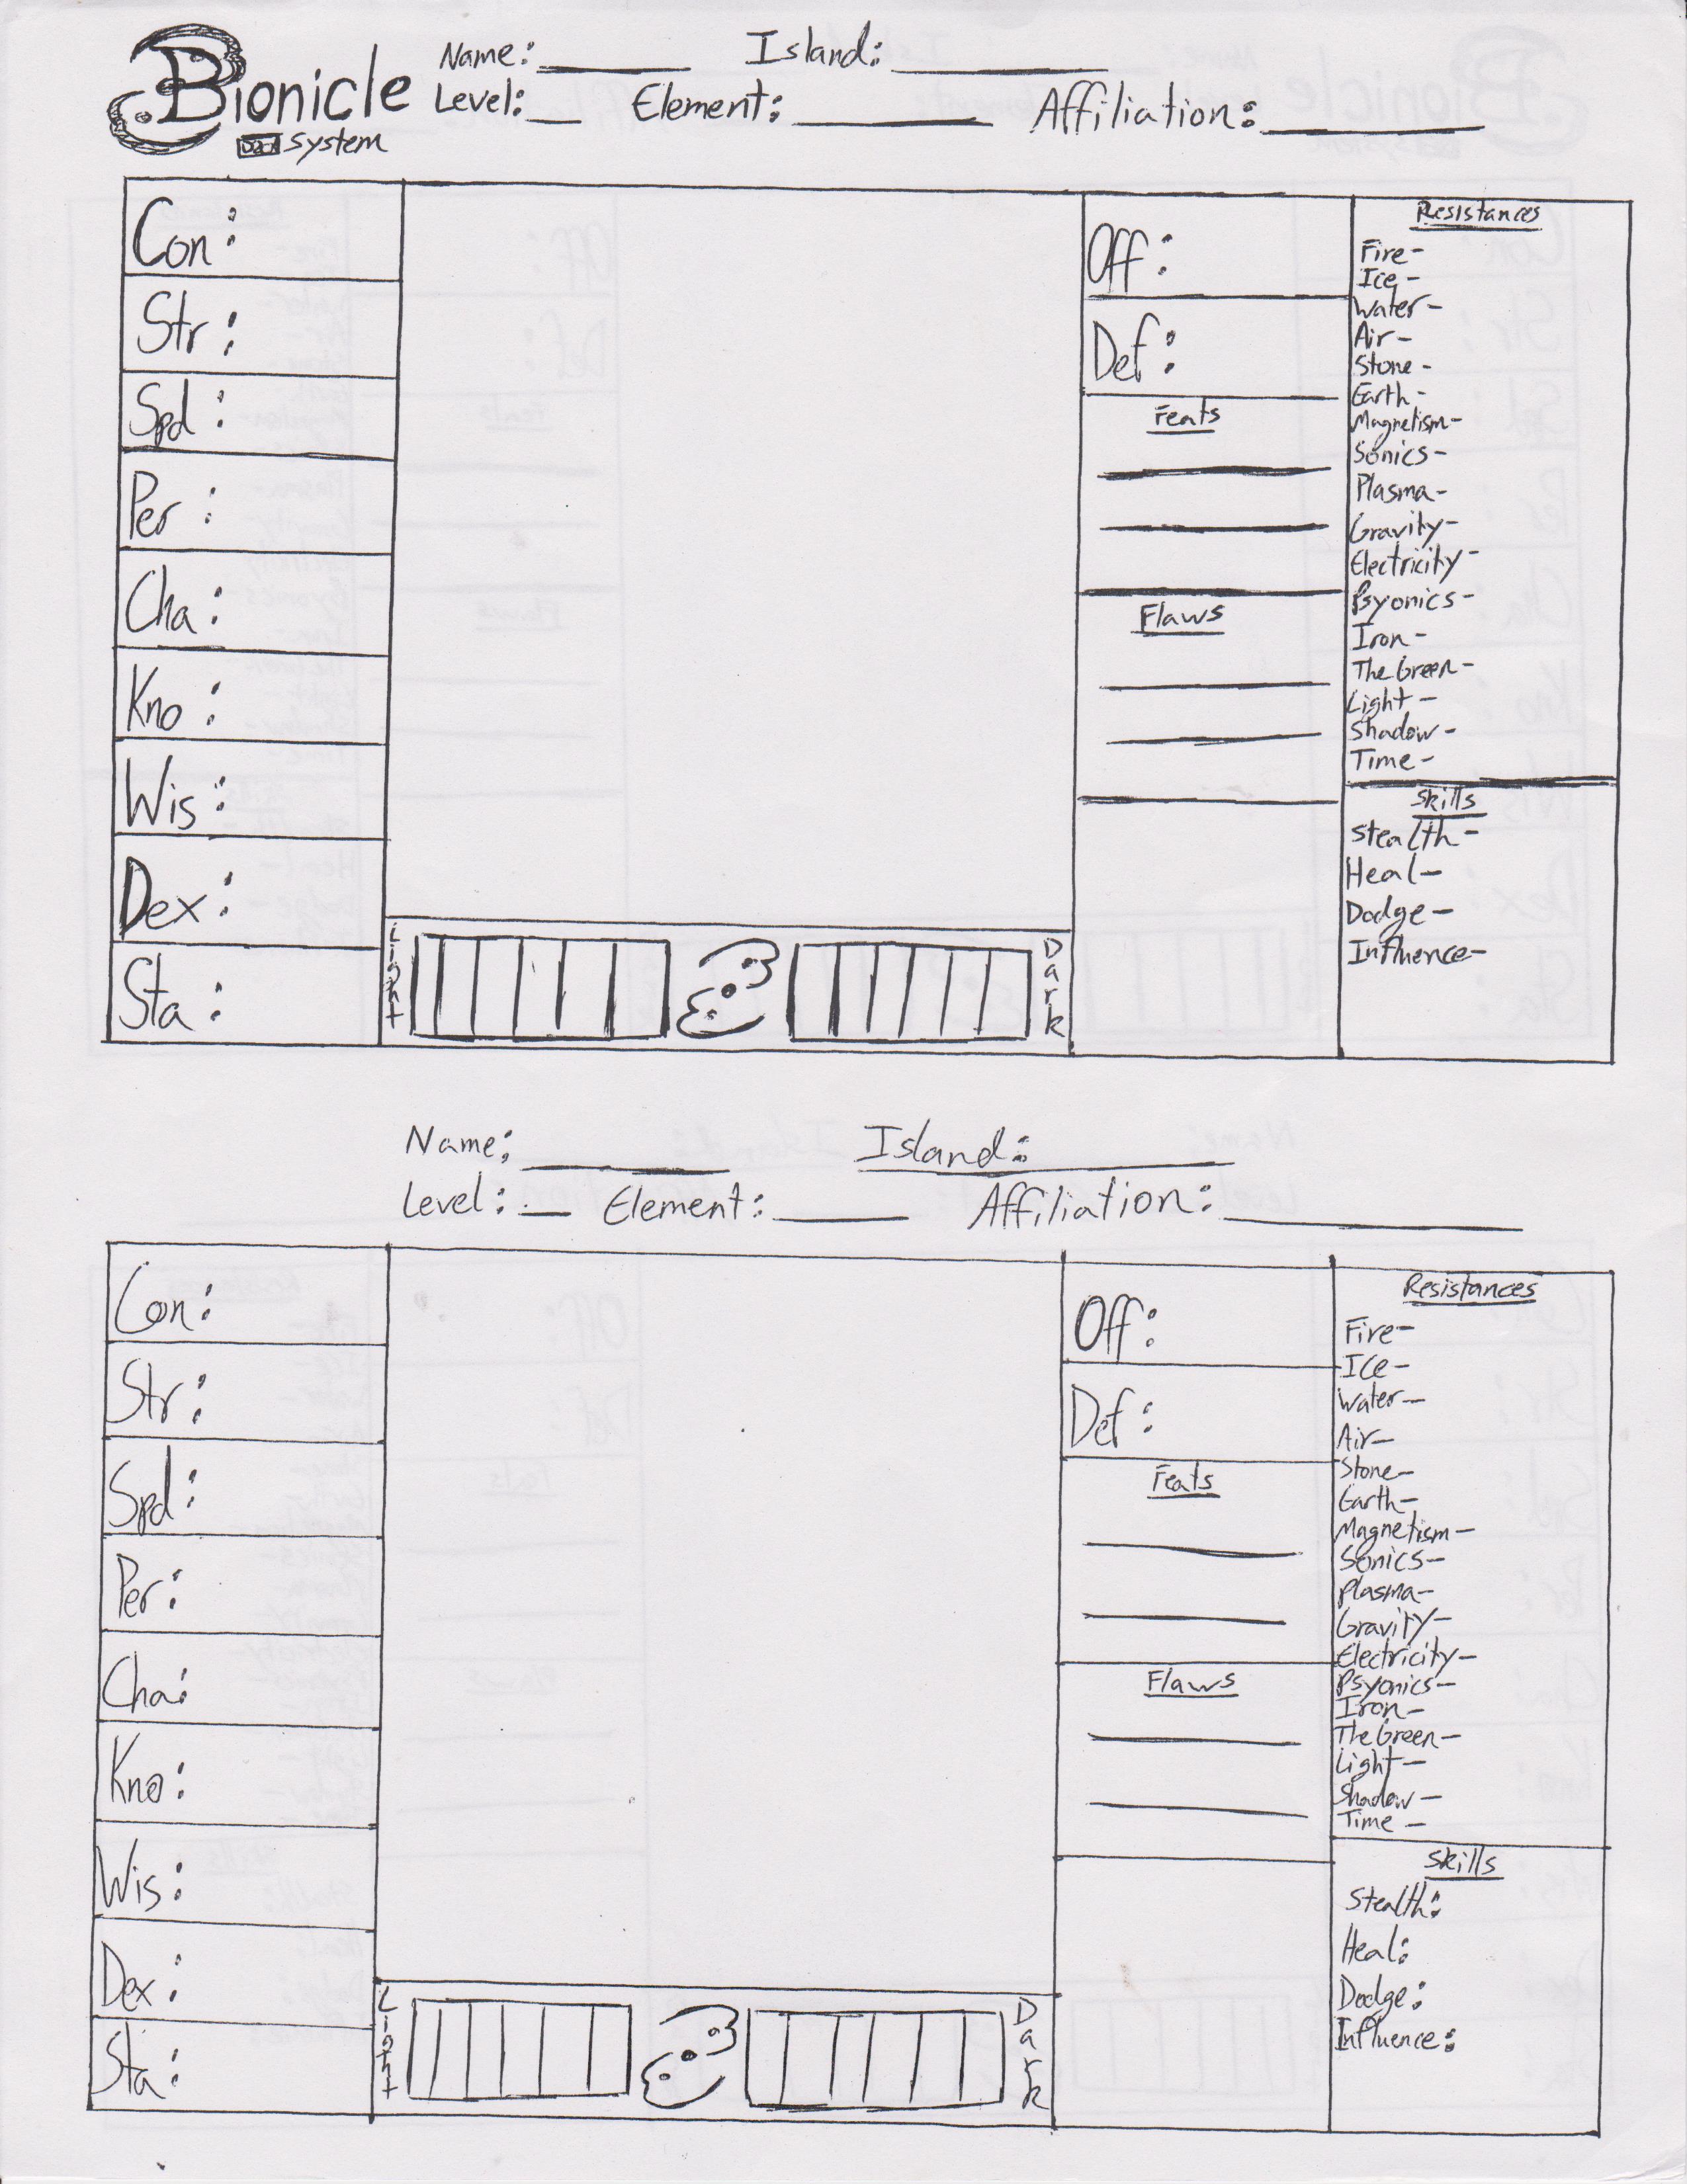 Bionicle
Name: Island:
Level: Element: Affiliation:
System
Con:
Str:
Spd:
Per:
Cha:
Kno:
Wis:
Dex:
Sta:
Light
Dark
Off:
Def:
Feats
Flaws
Resistances
Fire-
Ice-
Water-
Air-
Stone-
Earth-
Magnetism-
Sonics-
Plasma-
Gravity-
Electricity-
Psyonics-
Iron-
The Green-
Light-
Shadow-
Time-
Skills
Stealth-
Heal-
Dodge-
Influence-
Name: Island:
Level: Element: Affiliation:
Con:
Str:
Spd:
Per:
Cha:
Kno:
Wis:
Dex:
Sta:
Light
Dark
Off:
Def:
Feats
Flaws
Resistances
Fire-
Ice-
Water-
Air-
Stone-
Earth-
Magnetism-
Sonics-
Plasma-
Gravity-
Electricity-
Psyonics-
Iron-
The Green-
Light-
Shadow-
Time-
Skills
Stealth:
Heal:
Dodge:
Influence: